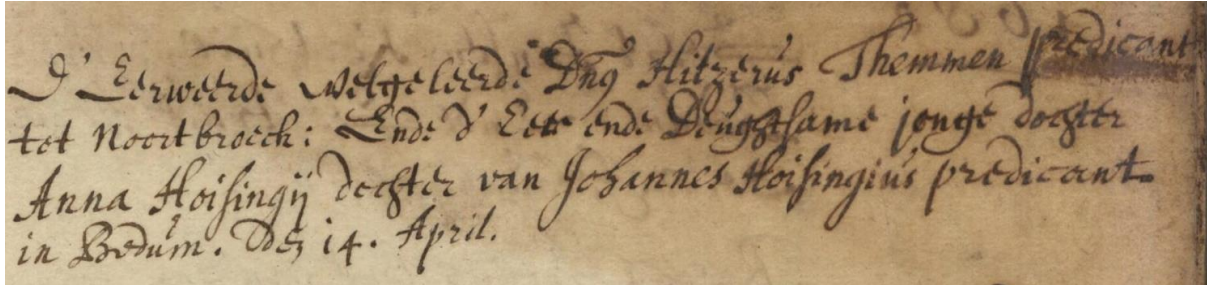 D' Eerweerde Welgeleerde Dns Hitzerus Themmen predicant
tot Noortbroeck: Ende d' Eer ende Deughtsame jonge dochter
Anna Hoisingij dochter van Johannes Hoisingius predicant
in Bedum. Den 14. April.